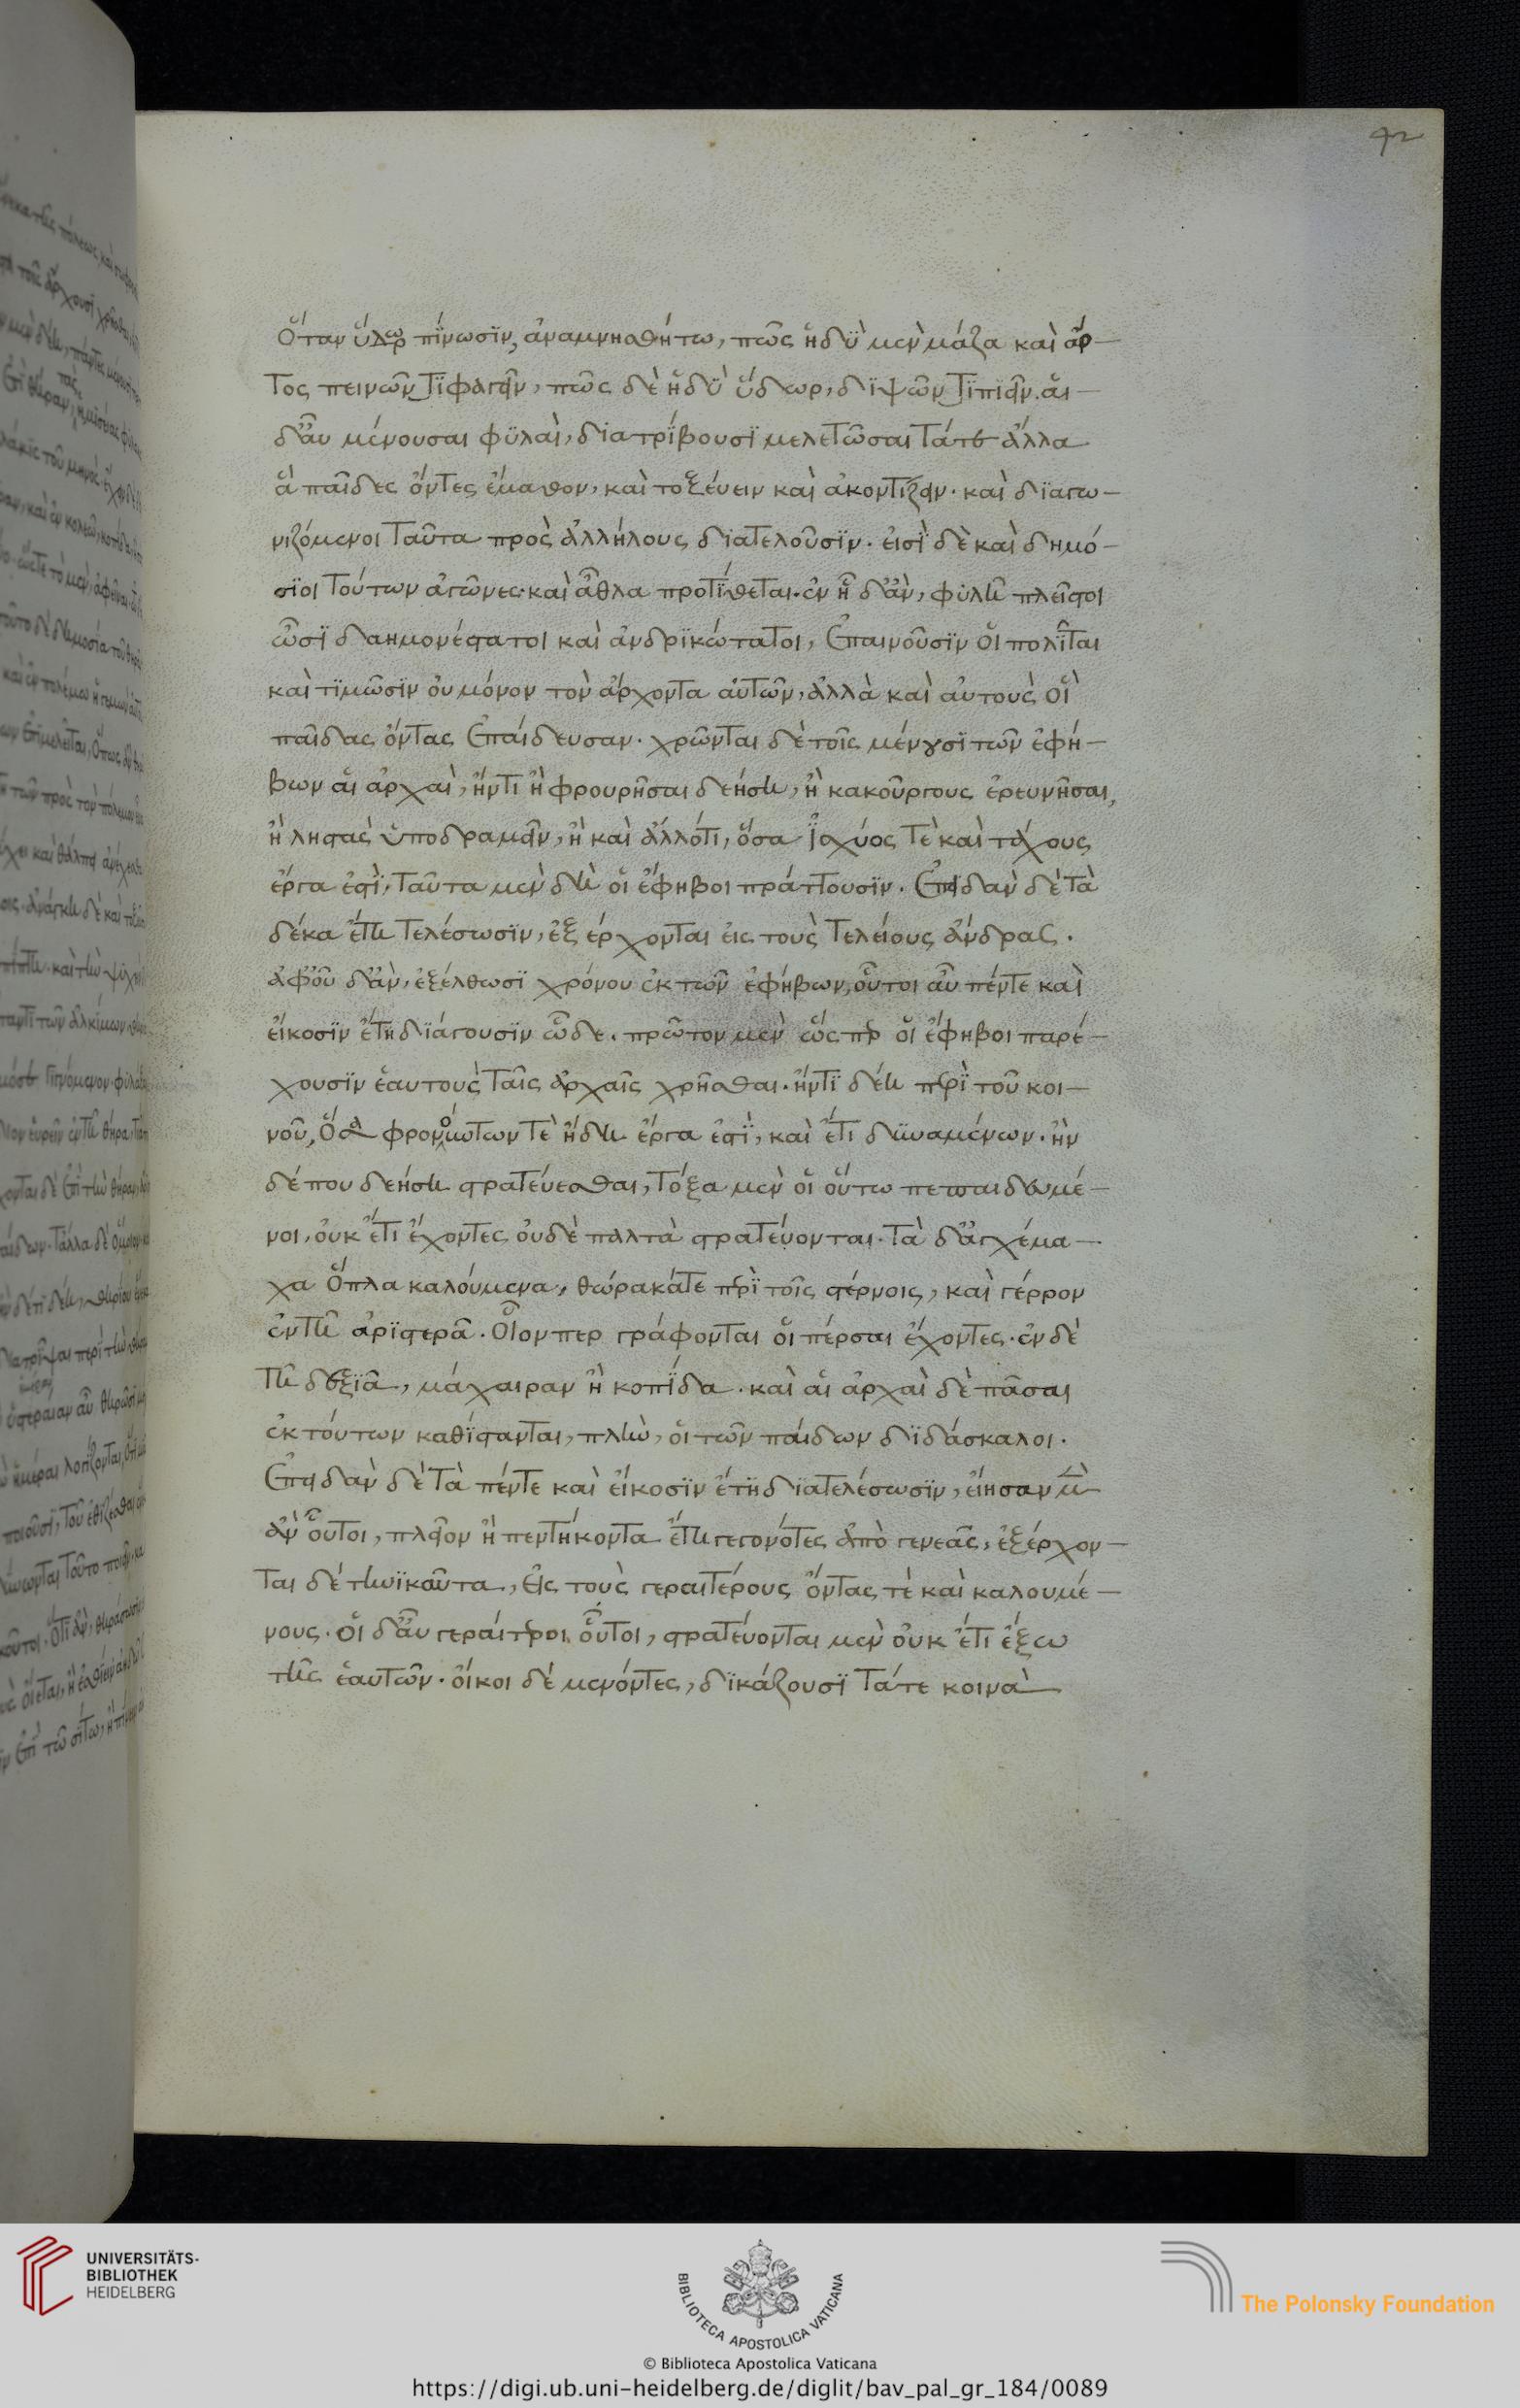 42
Ὅταν ὕδωρ πίνωσϊν, ἀναμνησθήτω, πῶς ἡδὺ μὲν μάζα καὶ ἄρ-
τος πεινῶντϊ φαγεῖν, πῶς δὲ ἡδὺ ὕδωρ, δϊψῶντϊ πιεῖν. αἱ
δ᾽αὖ μένουσαι φϋλαὶ, διατρίβουσϊ μελετῶσαι τάτε ἄλλα
ἃ παῖδες ὄντες ἔμαθον, καὶ τοξέυειν καὶ ἀκοντίζειν. καὶ δϊαγω-
νιζόμενοι ταῦτα πρὸς ἀλλήλους δϊατελοῦσϊν. εἰσϊ δὲ καὶ δημό-
σϊοι τούτων ἀγῶνες· καὶ ἆθλα προτίθεται. ἐν ᾗ δ᾽ἂν, φϋλῆ πλεῖστοι
ὦσϊ δαημονέστατοι καὶ ἀνδρϊκώτατοι, ἐπαινοῦσϊν οἱ πολῖται
καὶ τϊμῶσϊν οὐ μόνον τὸν ἄρχοντα αὐτῶν, ἀλλὰ καὶ αὐτοὺς οἳ
παῖδας ὄντας ἐπαίδευσαν. χρῶνται δὲ τοῖς μένουσϊ τῶν ἐφή-
βων αἱ ἀρχαὶ, ἤντι ἢ φρουρῆσαι δεήση, ἢ κακούργους ἐρευνῆσαι,
ἢ ληστὰς ὑποδραμεῖν, ἢ καὶ ἄλλότι, ὅσα ἰσχύος τὲ καὶ τάχους
ἔργα ἐστϊ, ταῦτα μὲν δὴ οἱ ἔφηβοι πράττουσϊν. ἐπειδὰν δὲ τὰ
δέκα ἔτη τελέσωσϊν, ἐξέρχονται εἰς τοὺς τελείους ἄνδρας.
ἀφ᾽οὗ δ᾽ἂν, ἐξέλθωσϊ χρόνου ἐκ τῶν ἐφήβων, οὗτοι αὖ πέντε καὶ
εἴκοσϊν ἔτη δϊάγουσϊν ὧδε. πρῶτον μὲν ὥσπερ οἱ ἔφηβοι παρέ-
χουσϊν ἑαυτοὺς ταῖς ἀρχαῖς χρῆσθαι. ἤντϊ δέη περὶ τοῦ κοι-
νοῦ, ὅσα φρονούντων τὲ ἤδη ἔργα ἐστϊ, καὶ ἔτι δυναμένων. ἢν
δέ που δεήση στρατέυεσθαι, τόξα μὲν οἱ οὕτω πεπαιδευμέ-
νοι, οὐκ ἔτι ἔχοντες οὐδὲ παλτὰ στρατέυονται. τὰ δ᾽ἀγχέμα-
χα ὅπλα καλούμενα, θώρακάτε περὶ τοῖς στέρνοις, καὶ γέρρον
ἐν τῆ ἀρϊστερᾶ. οἷον περ γράφονται οἱ πέρσαι ἔχοντες. ἐν δὲ
τῆ δεξϊᾶ, μάχαιραν ἢ κοπϊδα. καὶ αἱ ἀρχαὶ δὲ πᾶσαι
ἐκ τούτων καθίστανται, πλὴν, οἱ τῶν παίδων δϊδάσκαλοι.
Ἐπειδὰν δὲ τὰ πέντε καὶ εἴκοσϊν ἔτη δϊατελέσωσϊν, εἴησαν μὲν
ἂν οὗτοι, πλεῖον ἢ πεντήκοντα ἔτη γεγονότες ἀπὸ γενεᾶς, ἐξέρχον-
ται δὲ τηνϊκαῦτα, εἰς τοὺς γεραιτέρους ὄντας τὲ καὶ καλουμέ-
νους. οἱ δ᾽αὖ γεραίτεροι οὗτοι, στρατέυονται μὲν οὐκ ἔτι ἔξω
τῆς ἑαυτῶν. οἴκοι δὲ μενόντες, δϊκάζουσϊ τάτε κοινὰ
UNIVERSITÄTS-
BIBLIOTHEK
HEIDELBERG
BIBLIOTECA APOSTOLICA VATICANA
The Polonsky Foundation
© Biblioteca Apostolica Vaticana
https://digi.ub.uni-heidelberg.de/diglit/bav_pal_gr_184/0089